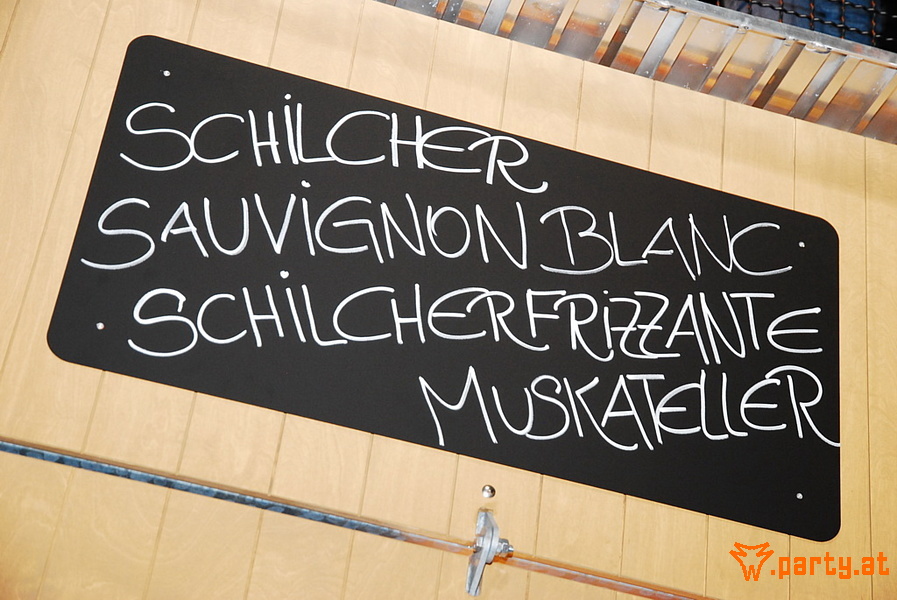 SCHiLCHER
SAUViGNON BLANC
SCHiLCHERFRiZZANTE
MUSKATELLER
W.party.at